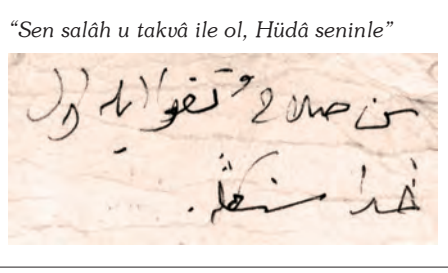 “Sen salâh u takvâ ile ol, Hüdâ seninle”
سن صلاح و تقوا ايله اول
خدا سنكله .